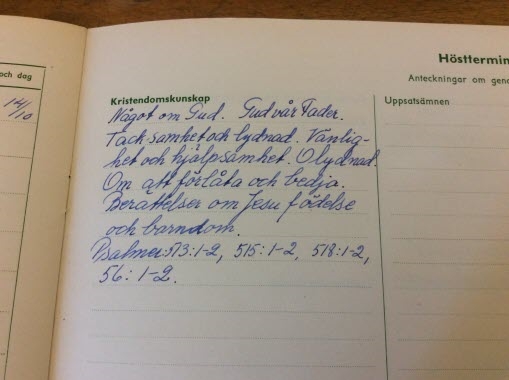 och dag
14/10
Hösttermin
Anteckningar om geno
Kristendomskunskap
Uppsatsämnen
Något om Gud. Gud vår Fader.
Tacksamhet och lydnad. Vänlig-
het och hjälpsamhet. Olydnad
Om att förlåta och bedja.
Berättelser om Jesu födelse
och barndom.
Psalmer: 513:1-2, 515:1-2, 518:1-2,
56: 1-2.